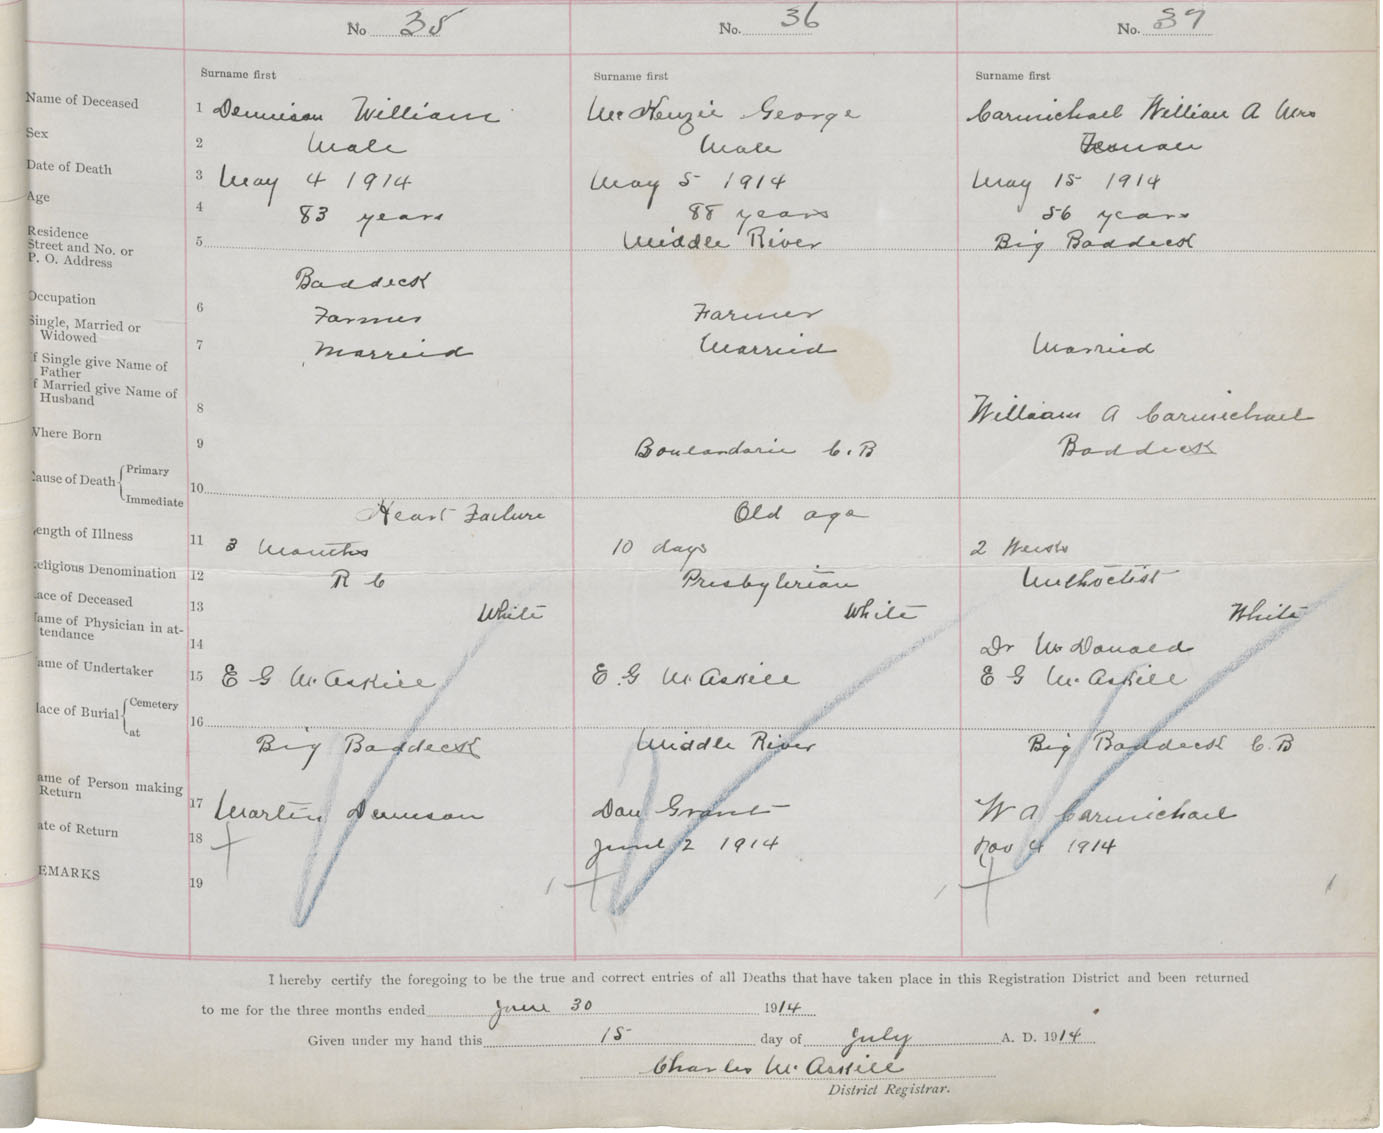 No 35
No. 36
No. 37
Surname first
Surname first
Surname first
Name of Deceased 1 Dennison William
McKenzie George
Carmichael William A Mrs
Sex 2 Male
Male
Female
Date of Death 3 May 4 1914
May 5 1914
May 15 1914
Age 4 83 years
88 years
56 years
Residence
Street and No. or
P. O. Address
5
Middle River
Big Baddeck
Baddeck
Occupation 6 Farmer
Farmer
Single, Married or
Widowed
7 Married
Married
Married
f Single give Name of
Father
f Married give Name of
Husband
8
William A Carmichael
Where Born 9
Boulardarie C.B
Baddeck
ause of Death { Primary
Immediate
10
Heart Failure
Old age
ength of Illness 11 3 Months
10 days
2 Weeks
eligious Denomination 12 R C
Presbyterian
Methodist
ace of Deceased 13 White
White
White
ame of Physician in at-
tendance
14
Dr McDonald
ame of Undertaker 15 E G McAskill
E. G McAskill
E G McAskill
lace of Burial { Cemetery
at
16
Big Baddeck
Middle River
Big Baddeck C.B
ame of Person making
Return
17 Martin Dennison
Dan Grant
W A Carmichael
ate of Return 18
June 2 1914
Nov 4 1914
EMARKS 19
I hereby certify the foregoing to be the true and correct entries of all Deaths that have taken place in this Registration District and been returned
to me for the three months ended June 30 1914
Given under my hand this 15 day of July A. D. 1914
Charles McAskill
District Registrar.